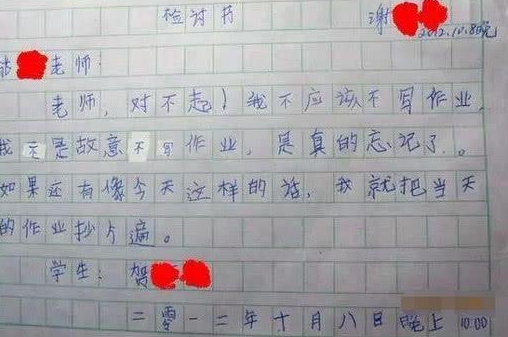 检讨书 谢
2012.10.8晚
老师：
老师，对不起！我不应该不写作业，
我不是故意不写作业，是真的忘记了。
如果还有像今天这样的话，我就把当天
的作业抄片遍。
学生：贺
二零一二年十月八日晚上10:00